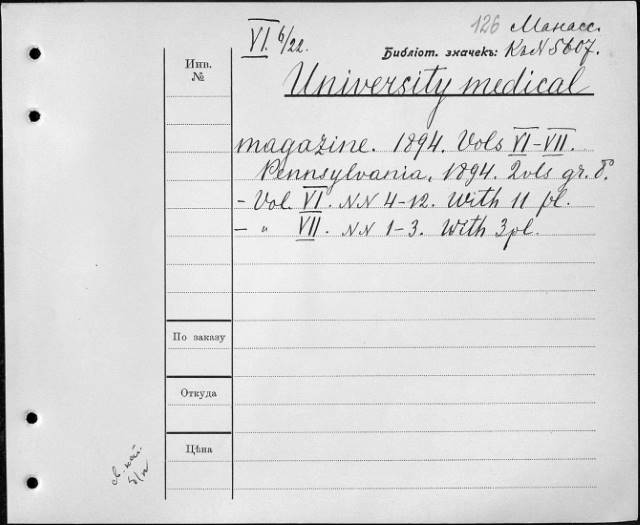 126 Манасс.
VI. 6/22.
Библіот. значекъ: КѣN 5607.
Инв.
№
University medical
magazine. 1894. Vols VI-VII.
Pennsylvania. 1894. 2 vls gr. 8.
- Vol. VI. NN 4-12. With 11 pl.
- " VII. NN 1-3. With 3 pl.
По заказу
Откуда
Цѣна